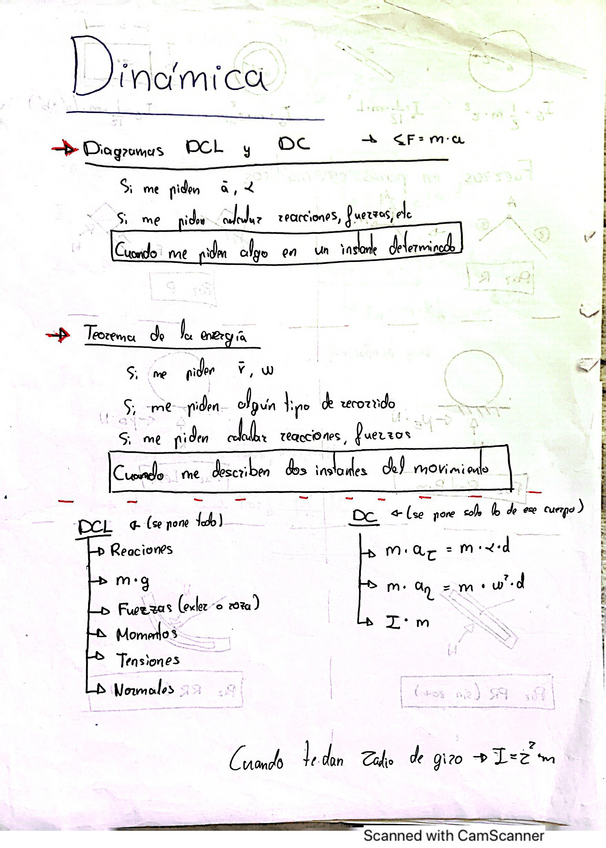 Dinámica
→ Diagramas DCL y DC → ΣF = m·a
Si me piden ā, α
Si me piden calcular reacciones, fuerzas, etc
Cuando me piden algo en un instante determinado
→ Teorema de la energía
Si me piden v̄, ω
Si me piden algún tipo de recorrido
Si me piden calcular reacciones, fuerzas
Cuando me describen dos instantes del movimiento
DCL ← (se pone todo)
→ Reaciones
→ m·g
→ Fuerzas (exter o roza)
→ Momentos
→ Tensiones
→ Normales
DC ← (se pone solo lo de ese cuerpo)
→ m·aτ = m·α·d
→ m·aη = m·ω²·d
→ I·m
Cuando te dan radio de giro → I = r²·m
Scanned with CamScanner